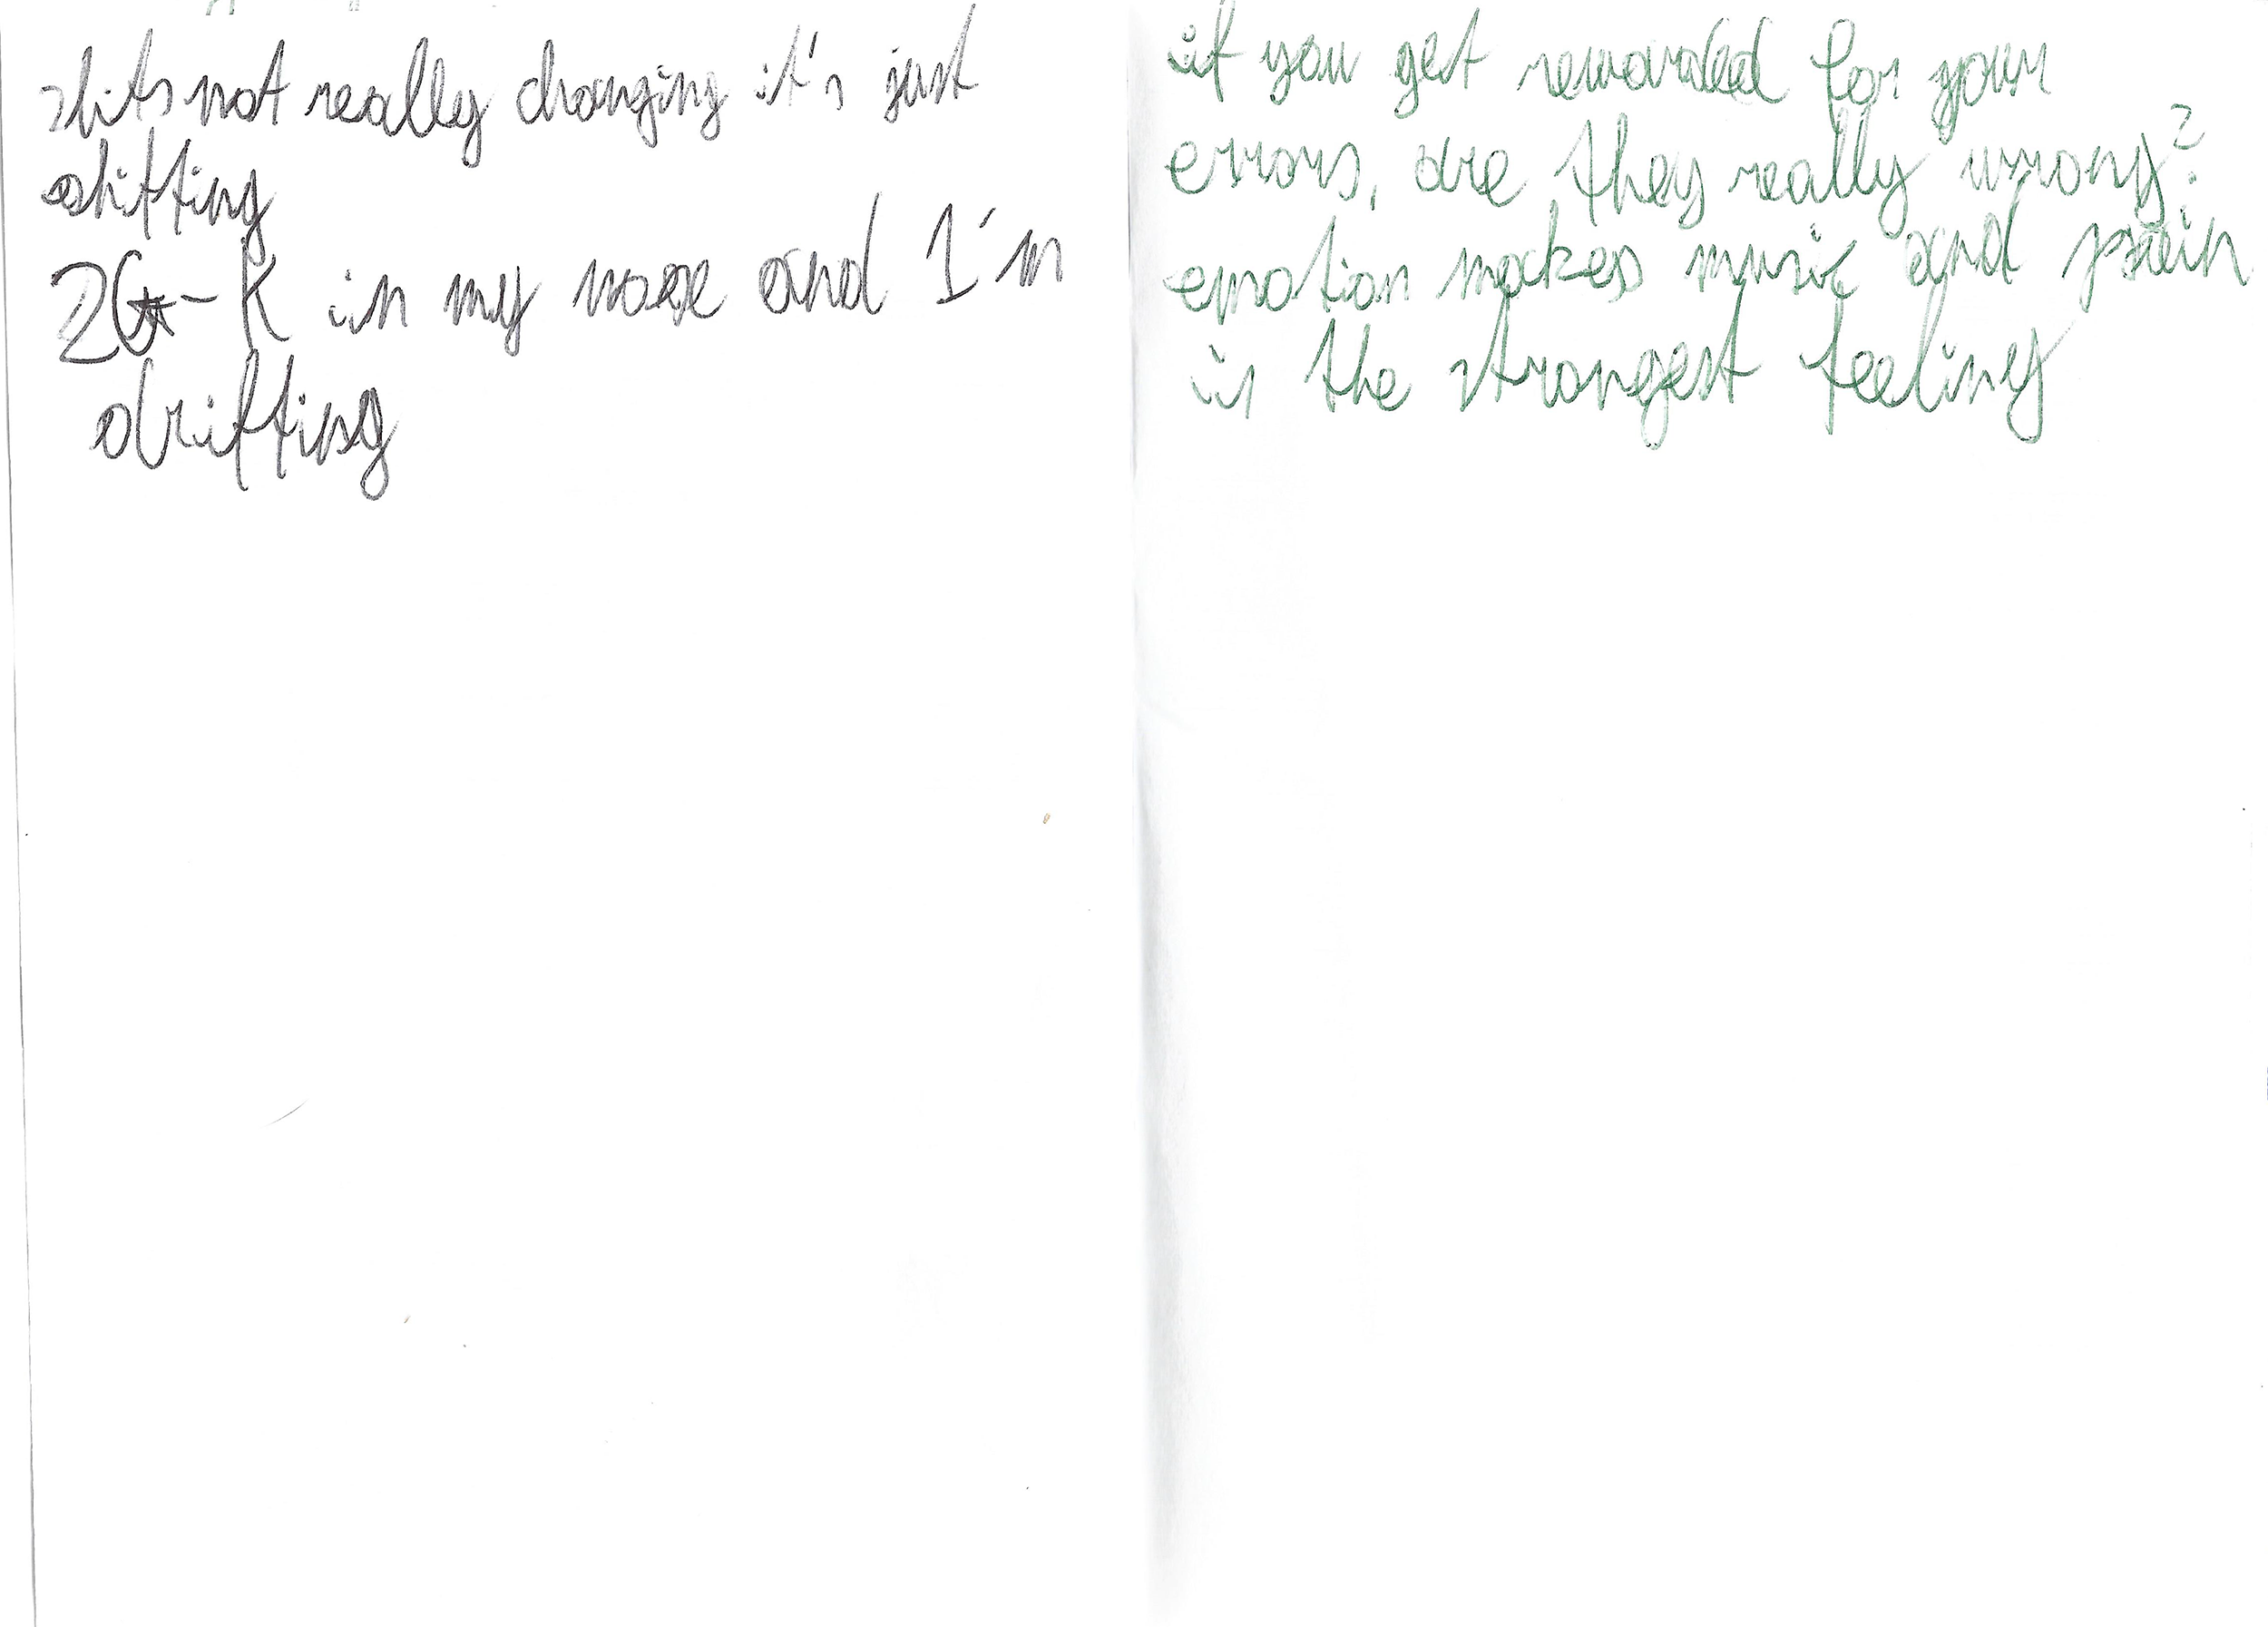 shits not really changing it's just
shifting
2G-K in my nose and I'm
drifting
if you get rewarded for your
errors, are they really wrong?
emotion makes music and pain
is the strongest feeling